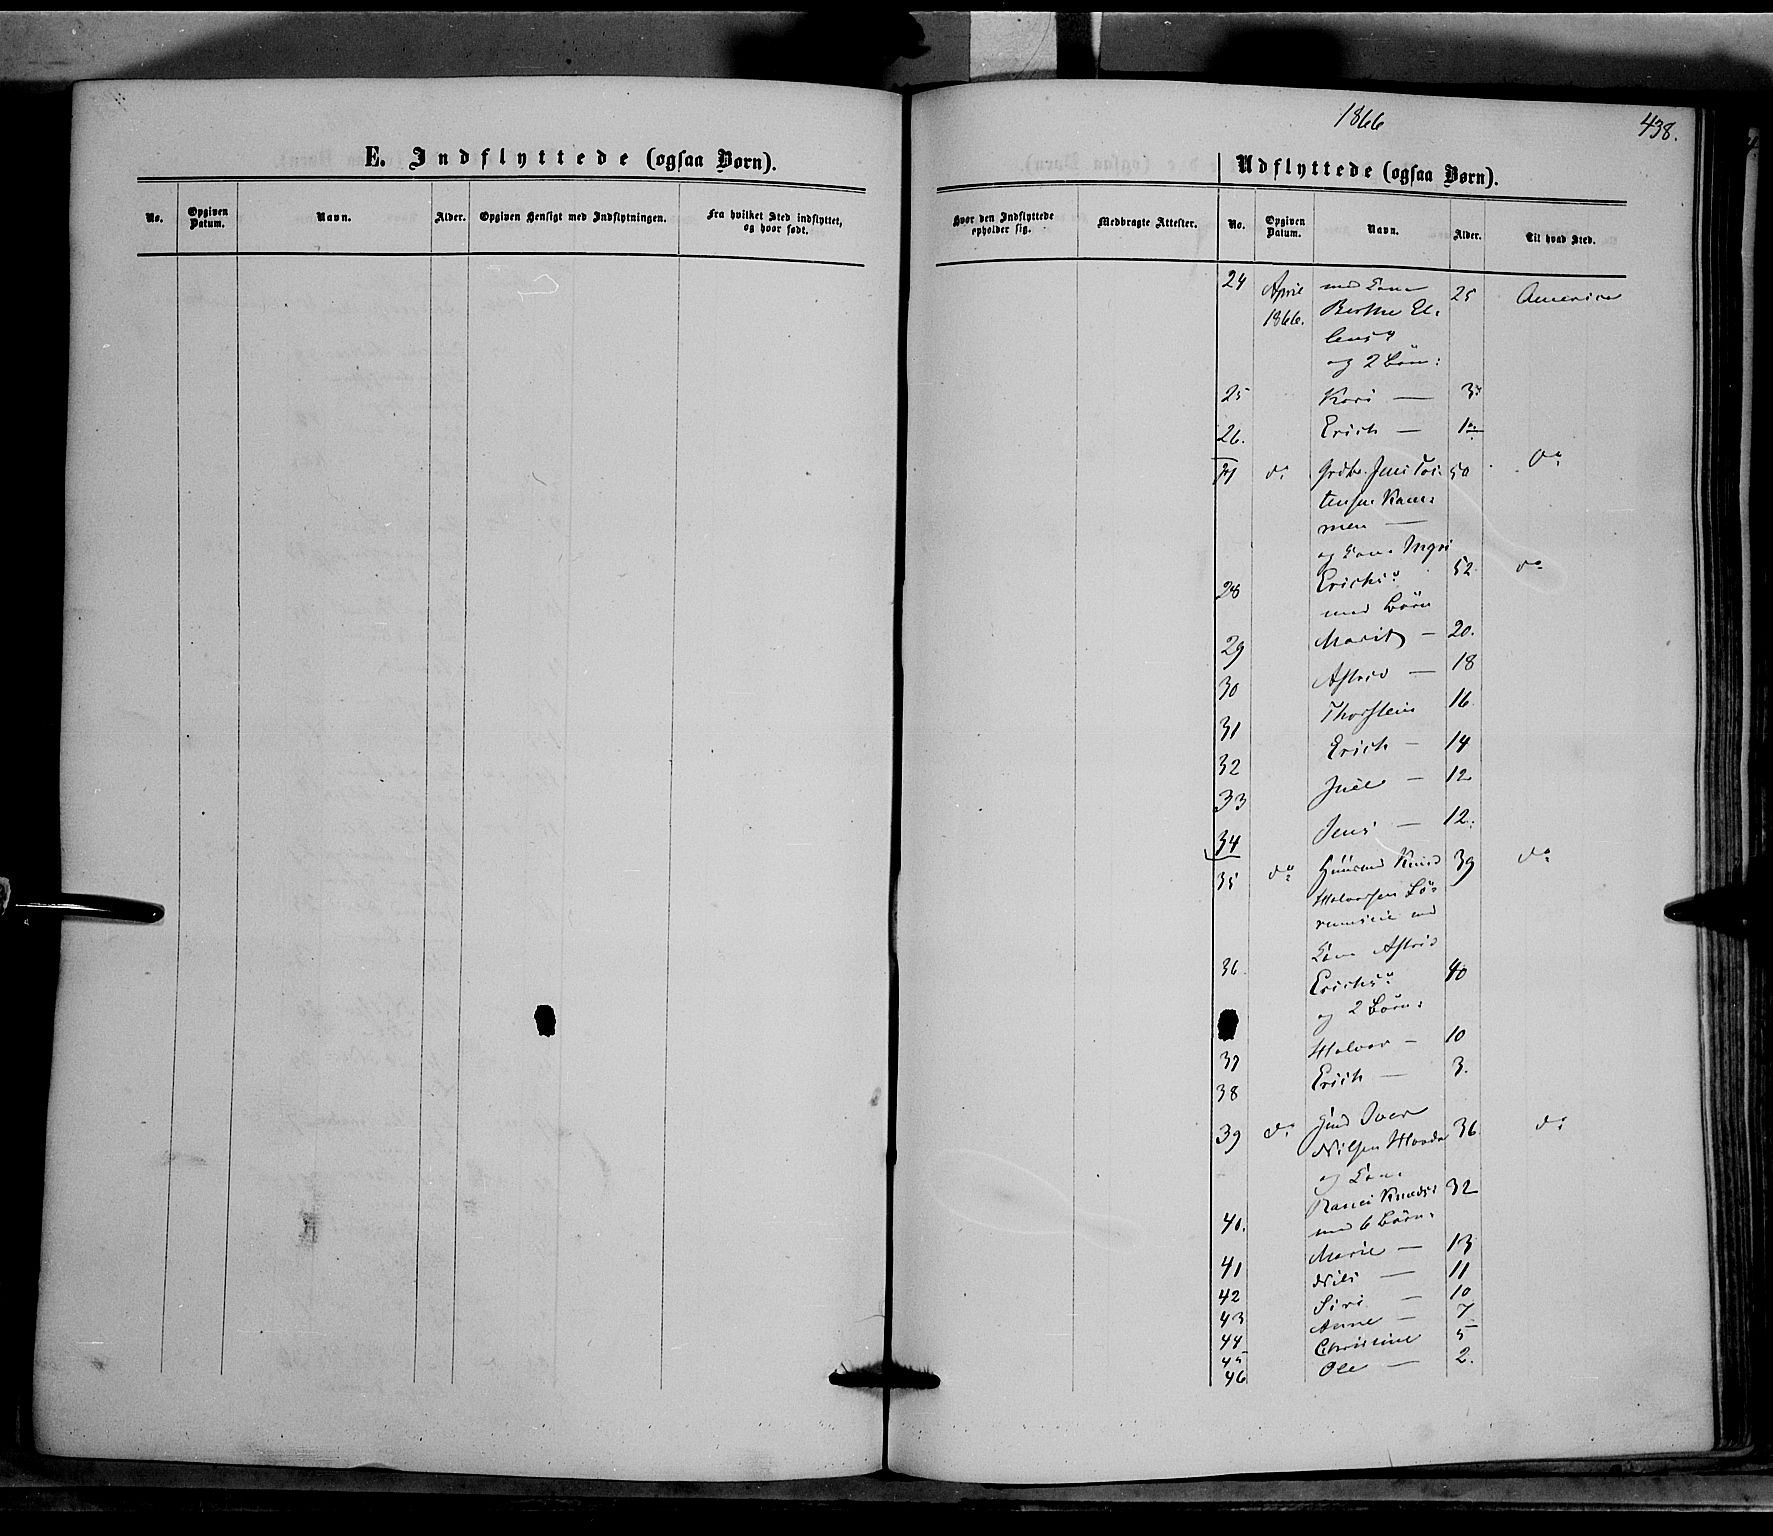 1866
438.
E. Indflyttede (ogsaa Børn).
Udflyttede (ogsaa Børn).
No.
Opgiven Datum.
Navn.
Alder.
Opgiven Hensigt med Indflytningen.
Fra hvilket Sted indflyttet, og hvor født.
Hvor den Indflyttede opholder sig.
Medbragte Attester.
No.
Opgiven Datum.
Navn.
Alder.
Til hvad Sted.
24 April med Kone 25 America
1866. Berthe El-
lensd
og 2 Børn:
25 Kari — 3
26. Erich — 1
27 do Jens Tos- 50 do
tensen
men —
og Kone Ingri
28 Erichsd 52 do
med Børn
29 Marit — 20.
30 Astrid — 18
31 Thorstein 16.
32 Erich — 14
33 Juel — 12
34 Jens — 12.
35 do Huusmd Knud 39 do
Halvorsen
med
36. Kone Astrid
Erichsd 40
og 2 Børn:
37 Halvor — 10
38 Erich — 3.
39 do Iver do
Nilsen 36
og Kone
40. Ranei Knudsd 32
med 6 Børn:
41 Marie — 13
42 Nils — 11
43 Siri — 10
44 Anne — 7
45 Christine 5
46 Ole — 2.